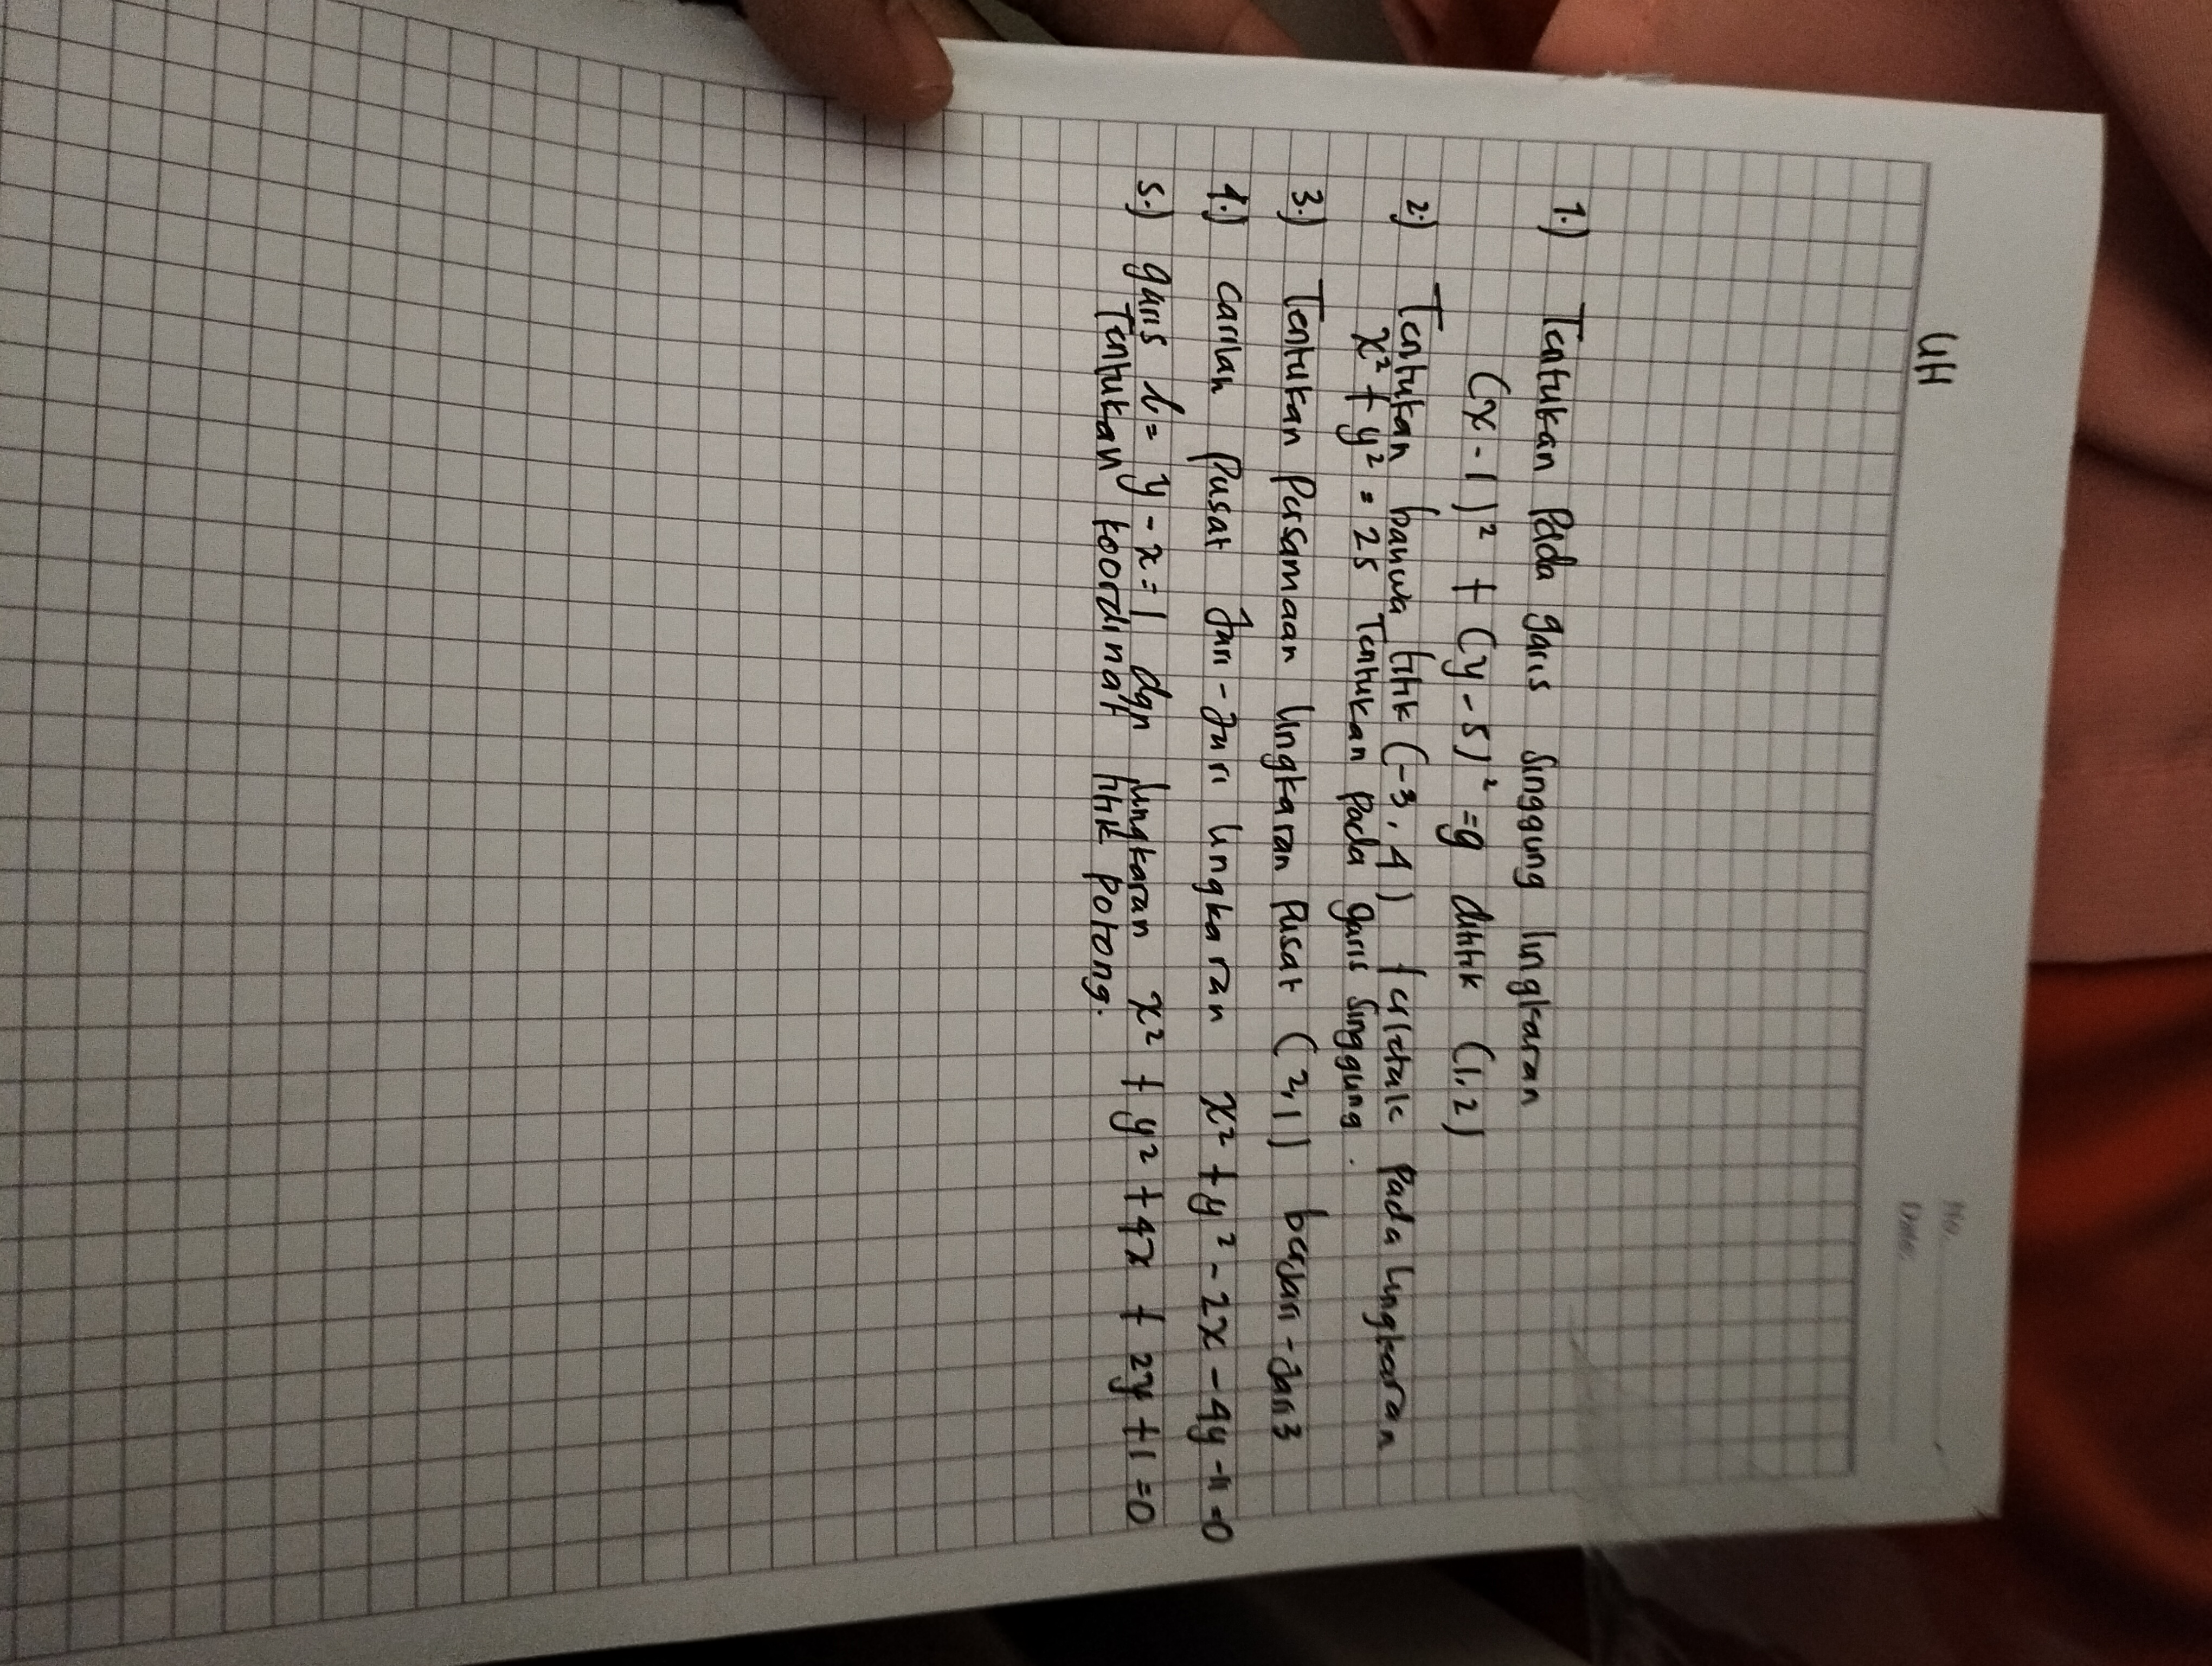 UH
No.
Date:
1.) Tentukan Pada garis Singgung lingkaran
(x-1)² + (y-5)² =9 dititik (1,2)
2.) Tentukan bahwa titik (-3,4) terletak Pada Lingkaran
x² + y² = 25 Tentukan Pada garis Singgung.
3.) Tentukan Persamaan Lingkaran Pusat (2,1) berjari-Jari 3
4.) carilah Pusat Jari-Jari lingkaran x² + y² - 2x - 4y -11 =0
5.) garis l= y-x=1 dgn lingkaran x² + y² +4x + 2y +1 =0
Tentukan koordinat titik Potong.